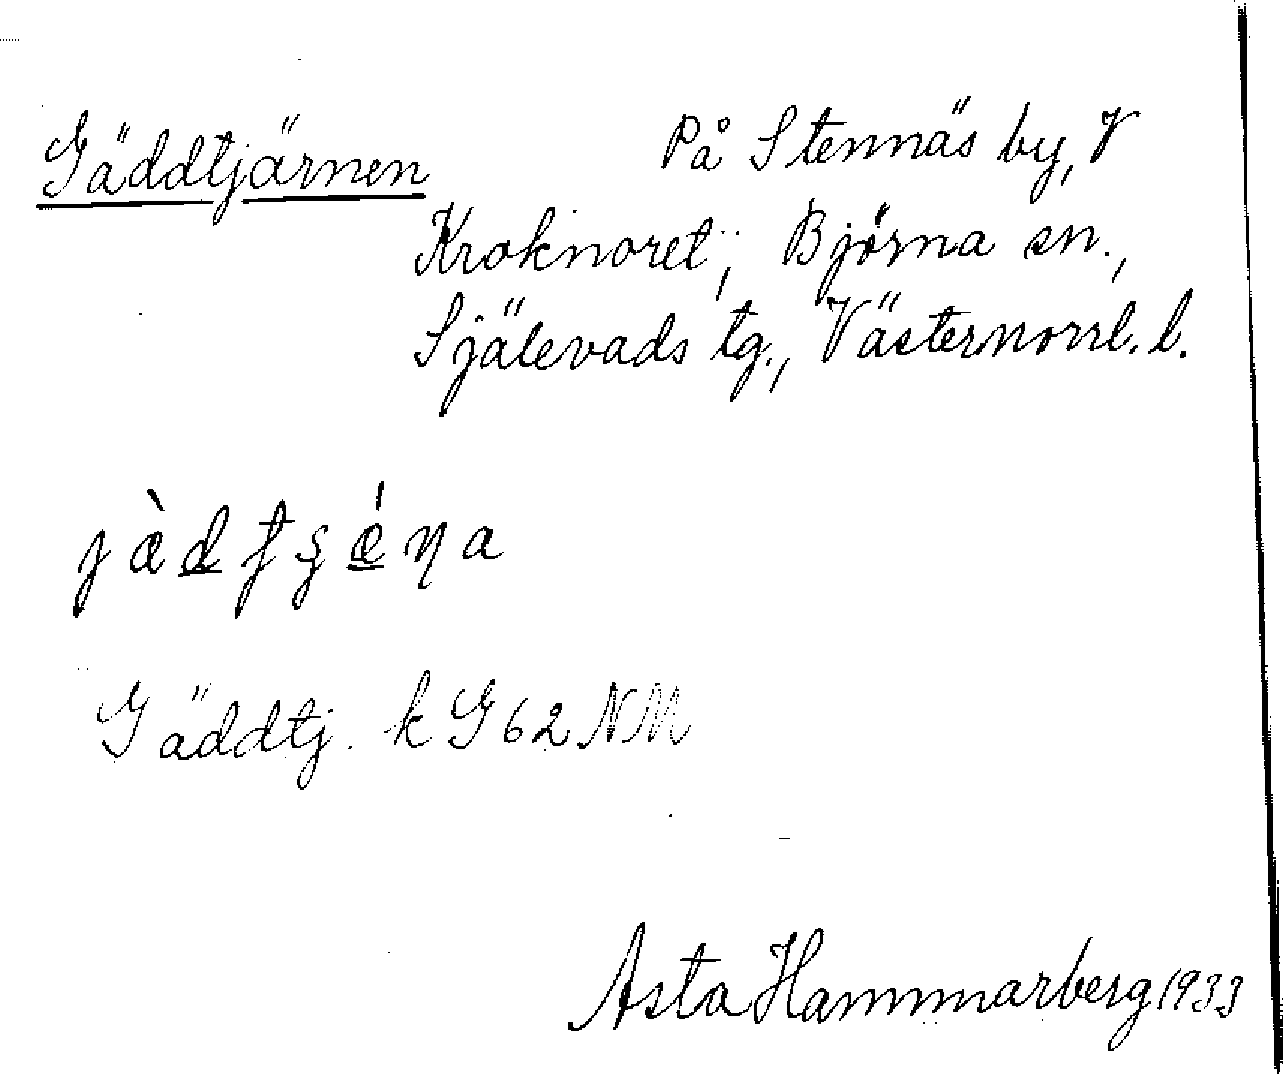 Gäddtjärnen På Stennäs by, V
Kroknoret, Björna sn.,
Själevads tg., Västernorrl. l.
jæ̀dtʂǽɳa
Gäddtj. k G 62 NM
Asta Hammarberg 1933